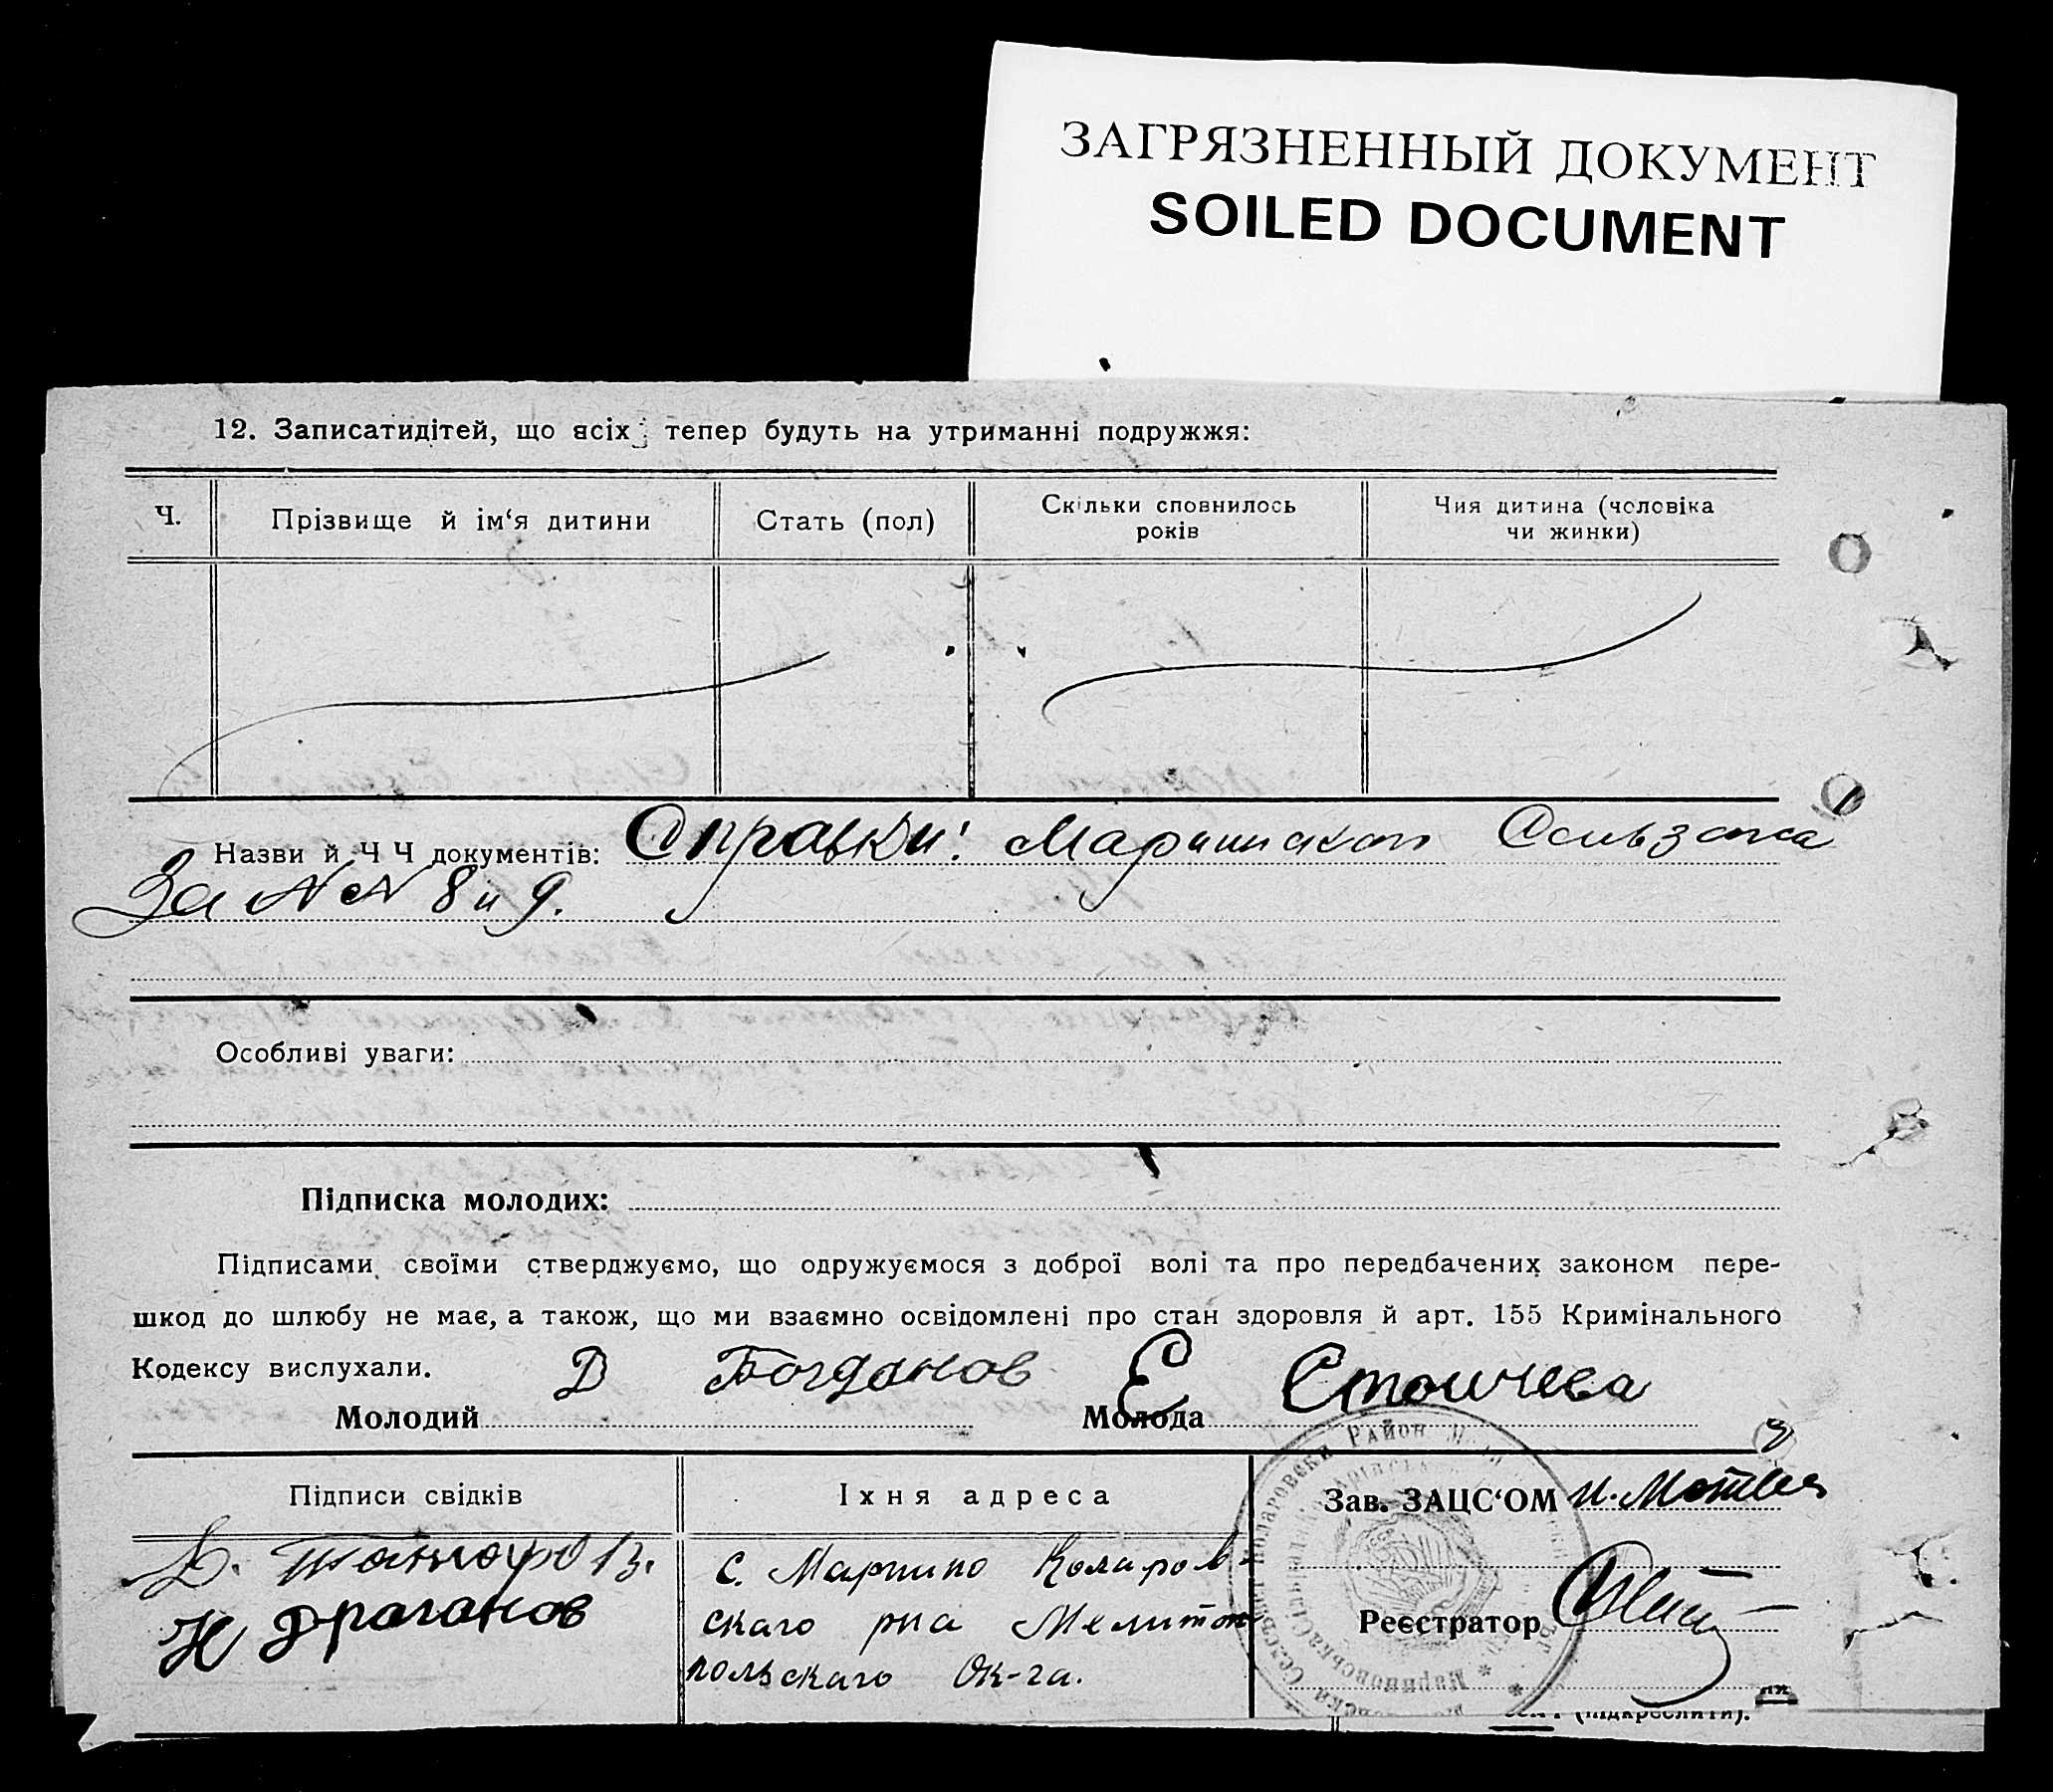 ЗАГРЯЗНЕННЫЙ ДОКУМЕНТ
SOILED DOCUMENT
12. Записатидітей, що всіх тепер будуть на утриманні подружжя:
Ч.
Прізвище й ім‘я дитини
Стать (пол)
Скільки сповнилось
років
Чия дитина (чоловіка
чи жинки)
Назви й Ч Ч документів: Справки: Сельзота
За N N 8 и 9.
Особливі уваги:
Підписка молодих:
Підписами своїми стверджуємо, що одружуємося з доброї волі та про передбачених законом пере-
шкод до шлюбу не має, а також, що ми взаємно освідомлені про стан здоровля й арт. 155 Кримінального
Кодексу вислухали.
Молодий Д Богданов Молода Е Стоичева
Підписи свідків
Їхня адреса
Зав. ЗАЦС‘ОМ
Д.
Н Драганов
с. Марино Коларов-
скаго рна Мелитон
польскаго Ок-га.
Реєстратор
РАЙОН
(підкреслити).